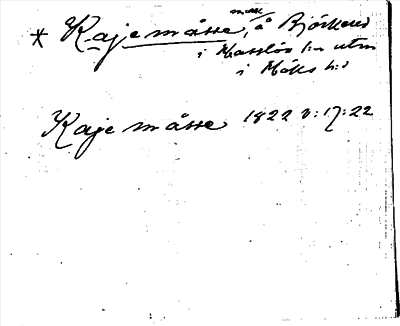 * Kajemåsse, mosse, å Björkered
i Masslös hn utm
i Möks hd
Kajemåsse 1822 v: 17: 22